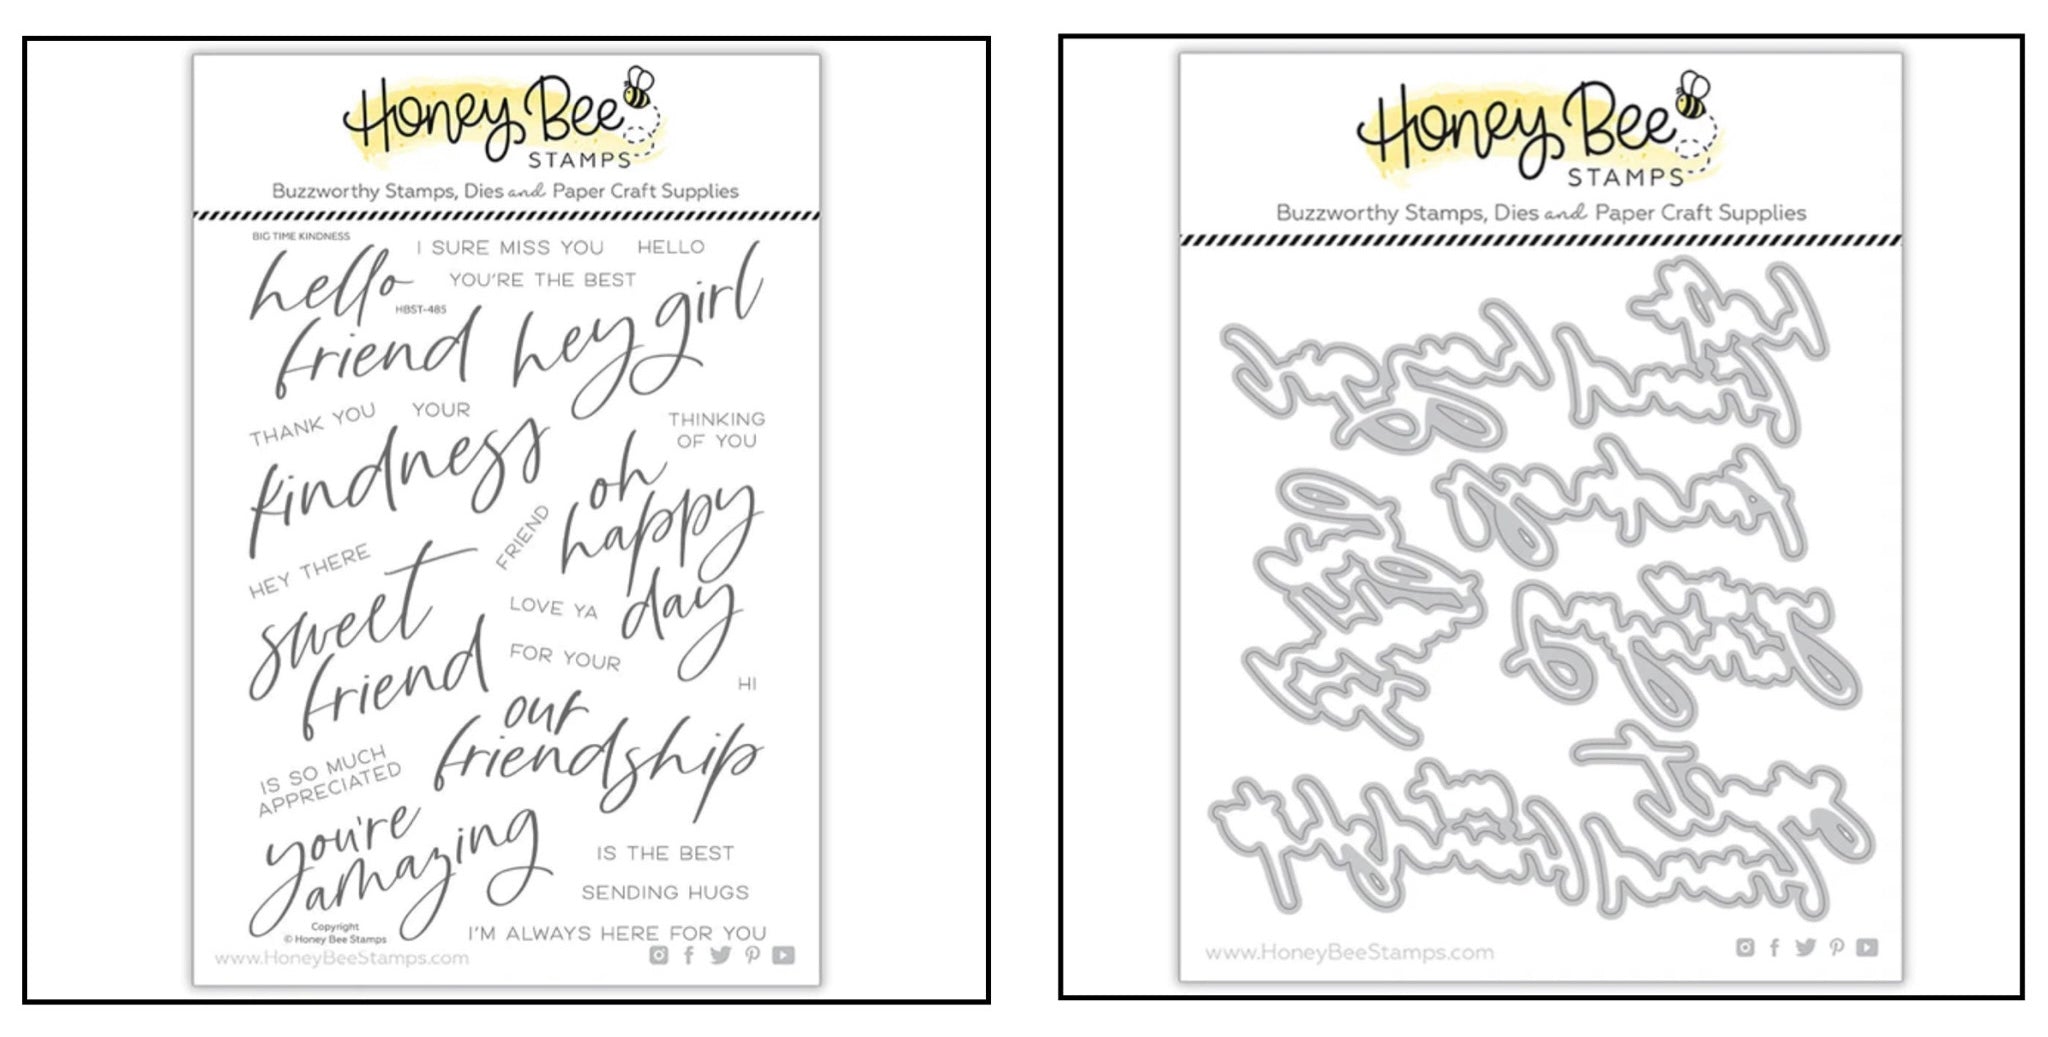 Honey Bee
STAMPS
Buzzworthy Stamps, Dies and Paper Craft Supplies
BIG TIME KINDNESS
I SURE MISS YOU
HELLO
hello
YOU'RE THE BEST
HBST-485
friend
hey girl
THANK YOU
YOUR
kindness
THINKING
OF YOU
oh
happy
day
FRIEND
HEY THERE
sweet
friend
LOVE YA
FOR YOUR
HI
our
friendship
IS SO MUCH
APPRECIATED
you're
amazing
IS THE BEST
SENDING HUGS
I'M ALWAYS HERE FOR YOU
Copyright
© Honey Bee Stamps
www.HoneyBeeStamps.com
Honey Bee
STAMPS
Buzzworthy Stamps, Dies and Paper Craft Supplies
www.HoneyBeeStamps.com